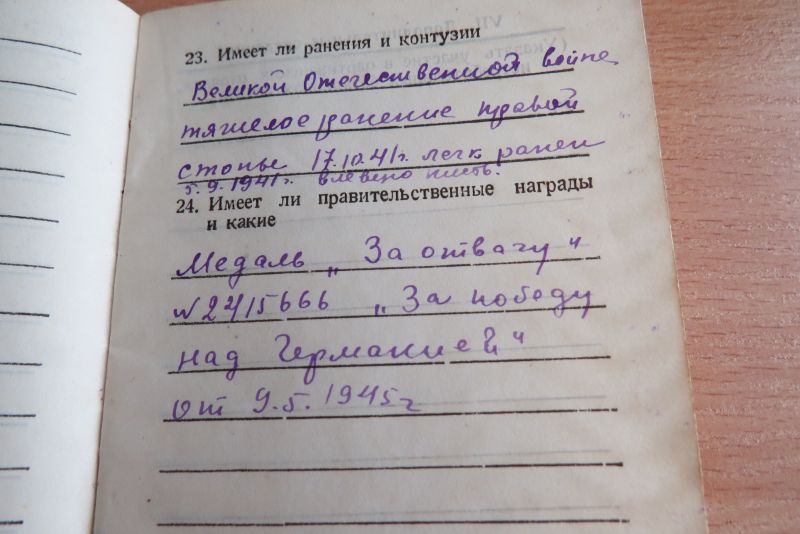 23. Имеет ли ранения и контузии
Великой Отечественной войне
тяжелое ранение правой
стопы 17.10.41г. легк ранен
5.9.1941г. в левую кисть.
24. Имеет ли правительственные награды
и какие
Медаль „За отвагу“
№2415666 „За победу
над Германией“
от 9.5.1945г